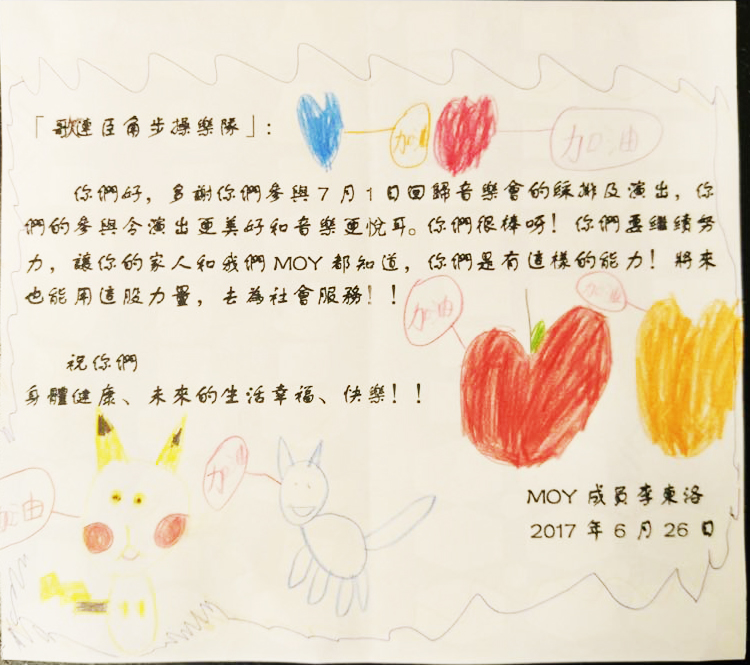 「歌連臣角步操樂隊」：
加油
加油
你們好，多謝你們參與7月1日回歸音樂會的綵排及演出，你
們的參與令演出更美好和音樂更悅耳。你們很棒呀！你們要繼續努
力，讓你的家人和我們MOY都知道，你們是有這樣的能力！將來
也能用這股力量，去為社會服務！！
加油
加油
祝你們
身體健康、未來的生活幸福、快樂！！
加油
加油
MOY 成員李東洛
2017 年 6 月 26 日